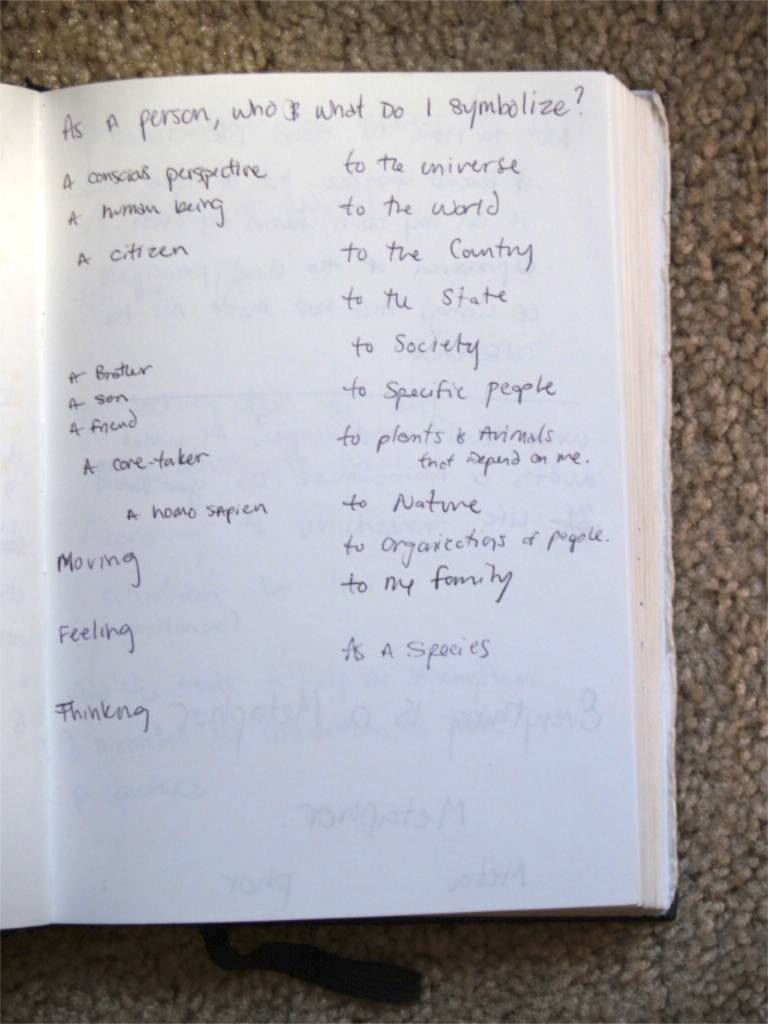 As A person, who & what Do I symbolize?
A conscious perspective to the universe
A human being to the world
A citizen to the Country
to the State
to Society
A Brother
A son to Specific people
A friend
to plants & Animals
A care-taker that Depend on me.
A homo sapien to Nature
to organizations of people.
Moving
to my family
Feeling
As A Species
Thinking
Everything is a Metaphor
Metaphor.
Meta phor